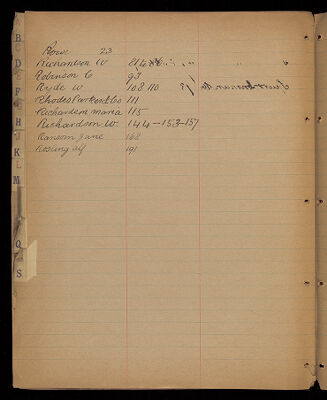 B
C
D
E
F
G
H
J
K
L
M
Q
S
Rose 23
Richardson W 81
Robinson C 93
Ryde W 108 110
Rhodes Parkent Co 111
Richardson Maria 115
Richardson W. 144-153-157
Ransom Jane 168
Rosling Alf 191